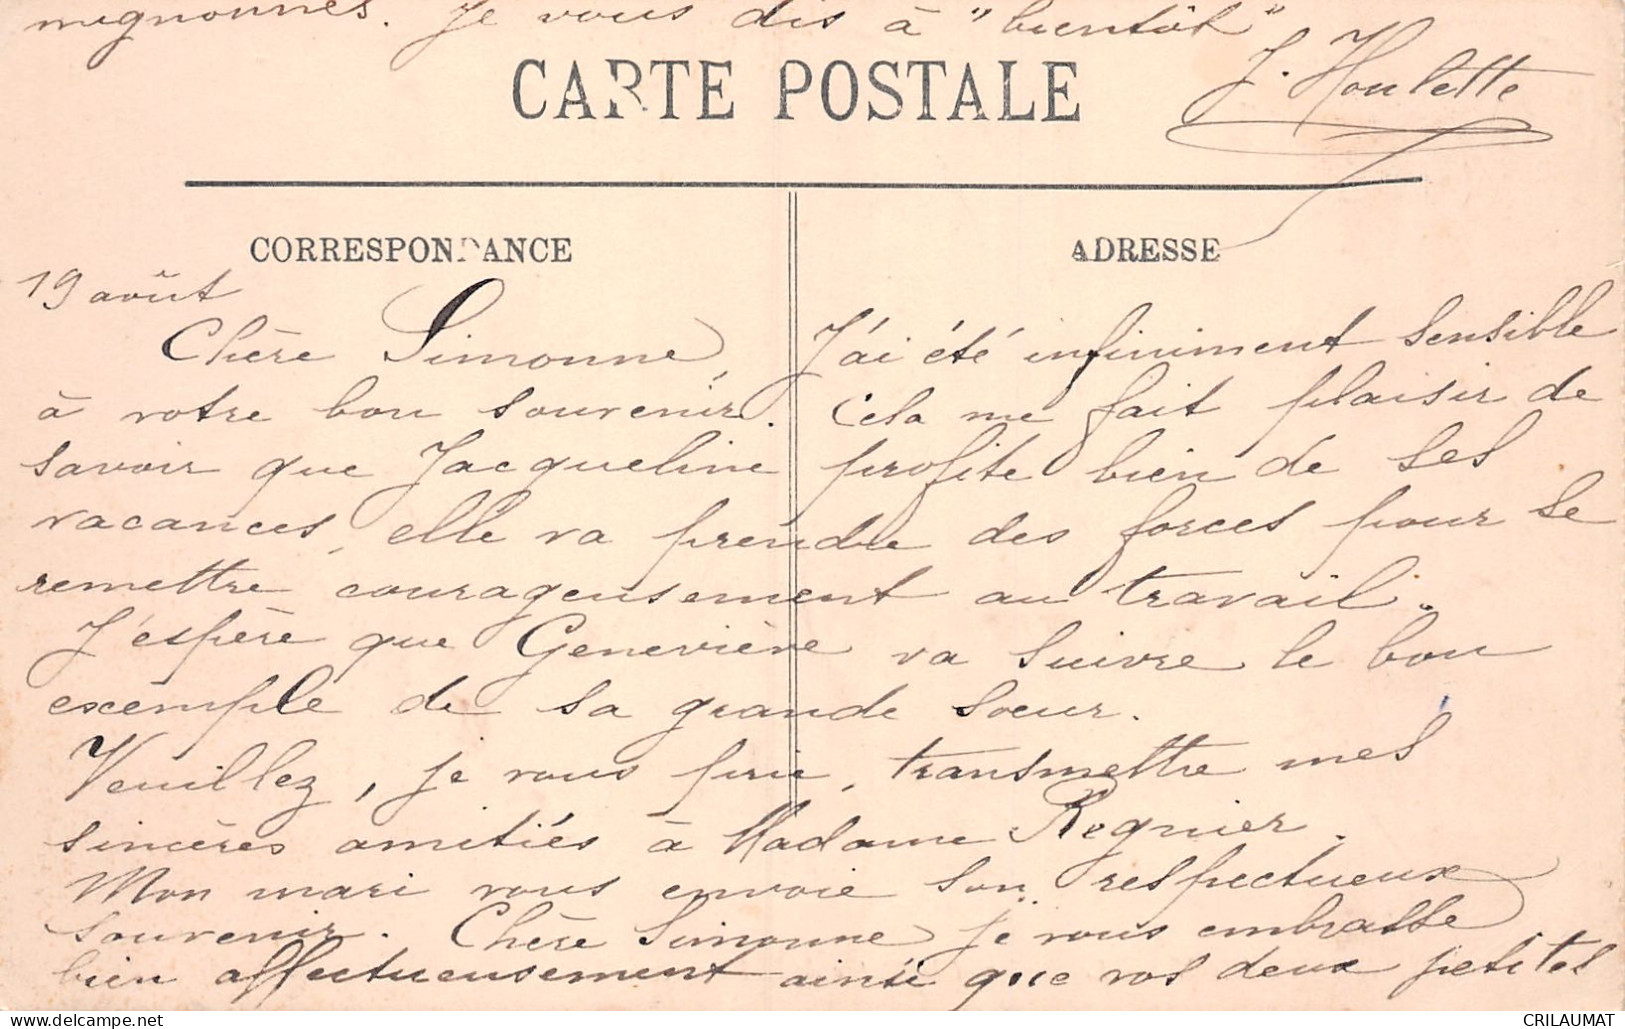 mignonnes. Je vous dis à "bientôt"
J. Houlette
CARTE POSTALE
CORRESPONDANCE
ADRESSE
19 août
Chère Simonne, J'ai été infiniment sensible
à votre bon souvenir. Cela me fait plaisir de
savoir que Jacqueline profite bien de ses
vacances, elle va prendre des forces pour se
remettre courageusement au travail.
J'espère que Geneviève va suivre le bon
exemple de sa grande soeur.
Veuillez, je vous prie, transmettre mes
sincères amitiés à Madame Regnier.
Mon mari vous envoie son respectueux
souvenir. Chère Simonne je vous embrasse
bien affectueusement ainsi que vos deux petites
CRILAUMAT